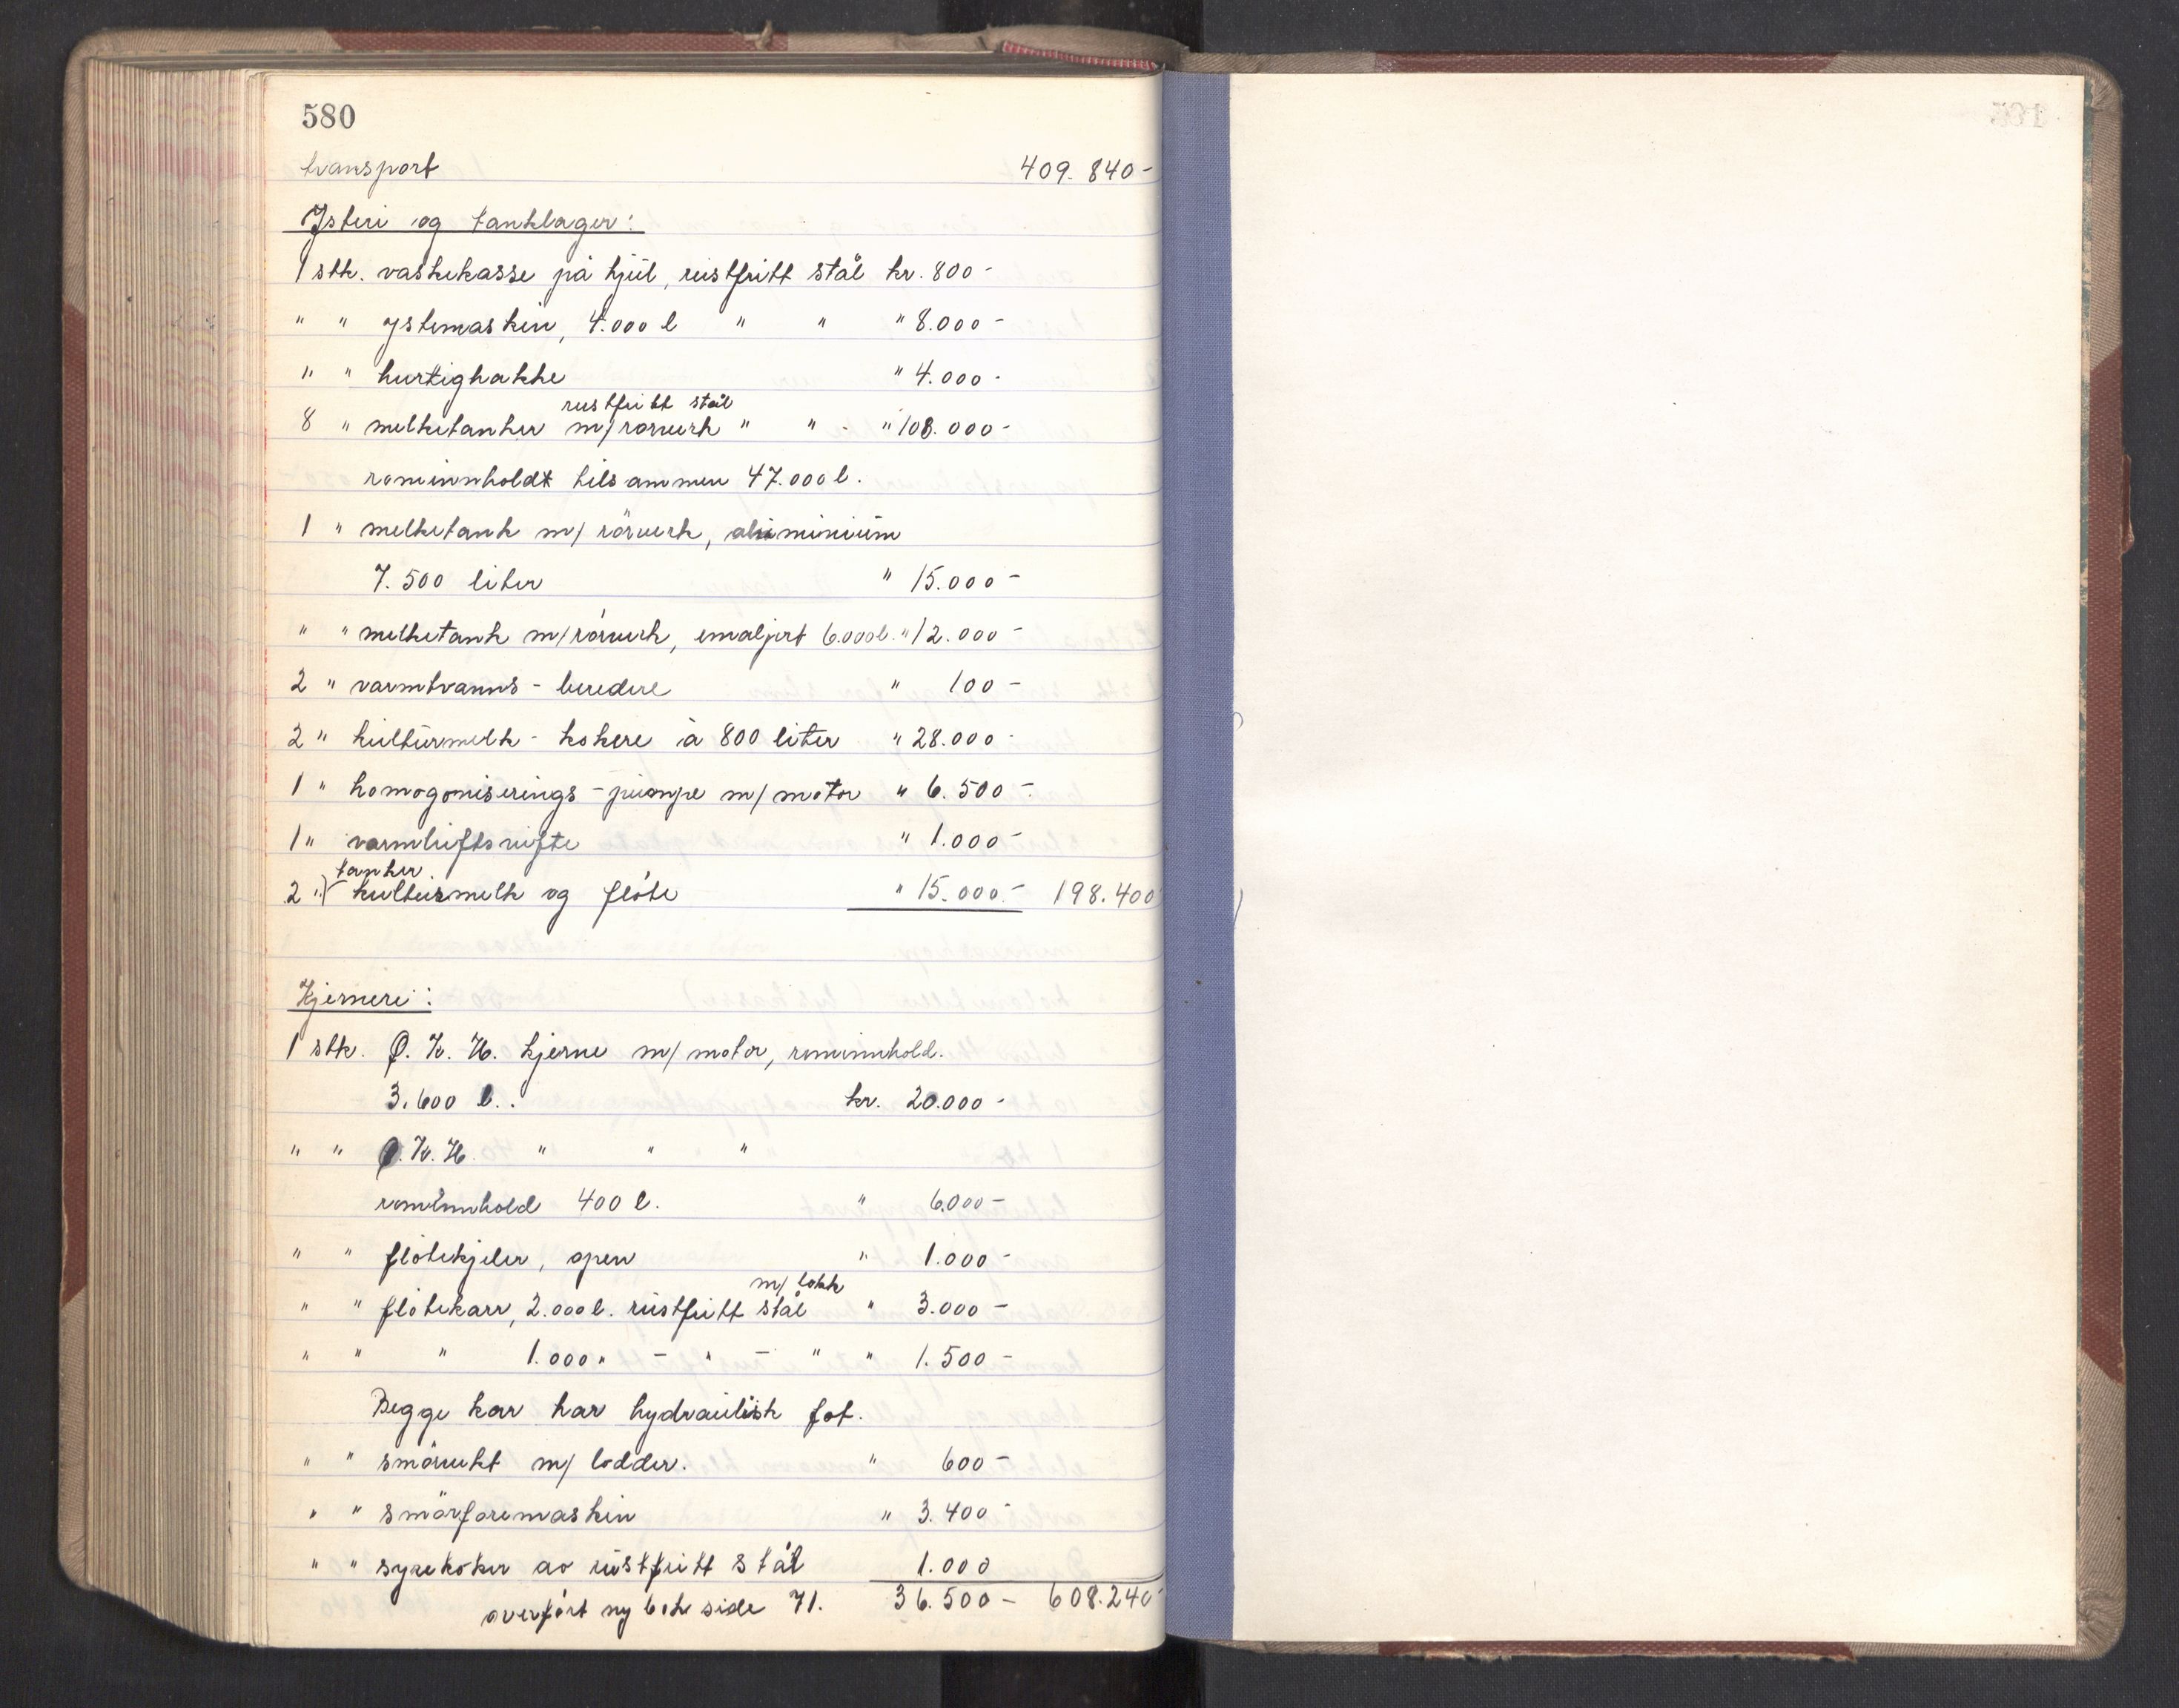 580
transport 409.840-
Ysteri og tanklager:
1 stk. vaskekasse på hjul, rustfritt stål kr. 800-
" " ystemaskin, 4.000 l " " " 8.000-
" " hurtighakke " 4.000-
rustfritt stål
8 " melketanker m/rørverk " " - " 108.000-
rominnholdt tilsammen 47.000 l.
1 " melketank m/ rörverk, aluminium
7.500 liter " 15.000-
" " melketank m/rörverk, emaljert 6.000 l. " 12.000-
2 " varmtvanns-beredere " 100-
2 " kulturmelk-kokere à 800 liter " 28.000-
1 " homogoniserings-pumpe m/ motor " 6.500-
1 " varmluftsvifte " 1.000-
tanker
2 " kulturmelk og flöte " 15.000.- 198.400
Kjerneri:
1 stk. Ø. K. H. kjerne m/ motor, rominnhold.
3.600 l.. kr. 20.000-
" " Ø. K. H. " " "
rominnhold 400 l. " 6.000-
" " flötekjeler, open " 1.000-
m/ lokk
" " flötekarr, 2.000 l. rustfritt stål " 3.000-
" " " 1.000 " - " - " " 1.500-
Begge kar har hydraulisk fot.
" " smörvekt m/ lodder. " 600-
" " smörforemaskin " 3.400-
" " syrekoker av rustfritt stål 1.000
overfört ny bok side 71. 36.500- 608.240-